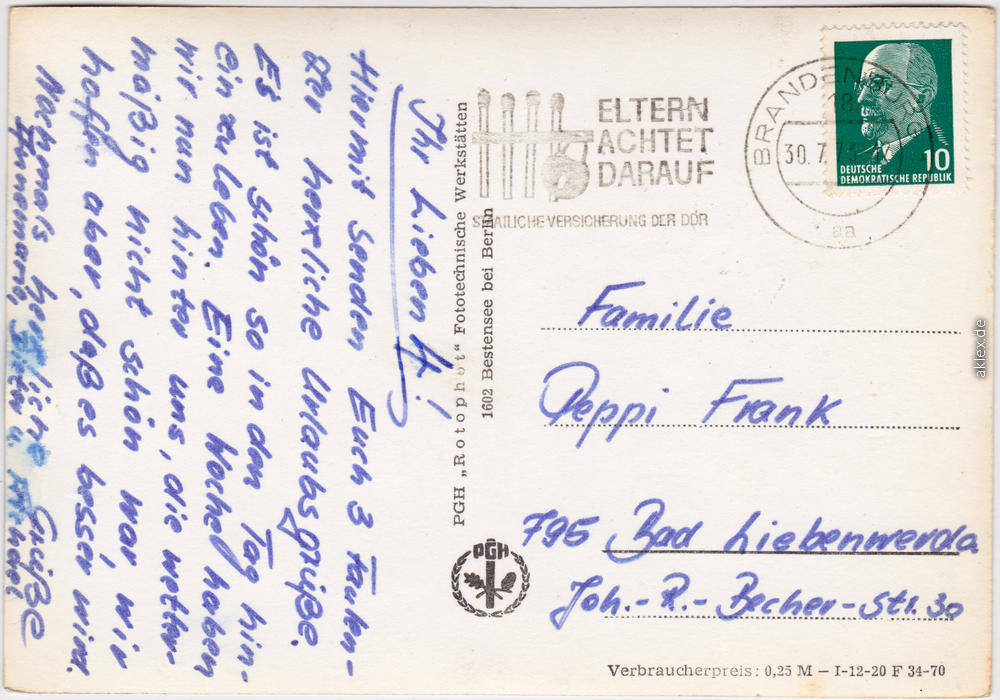 Ihr Lieben 4!
Hiermit senden Euch 3 Faulen-
zer herzliche Urlaubsgrüße.
Es ist schön so in den Tag hin-
ein zu leben. Eine Woche haben
wir nun hinter uns, die wetter-
mäßig nicht schön war, wir
hoffen aber, daß es besser wird.
Nochmals herzliche Grüße
Annemarie, Dieter u.
PGH „Rotophot“ Fototechnische Werkstätten
1602 Bestensee bei Berlin
PGH
ELTERN
ACHTET
DARAUF
STAATLICHE VERSICHERUNG DER DDR
BRANDENBURG
30.7.73
aa
10
DEUTSCHE
DEMOKRATISCHE REPUBLIK
Familie
Peppi Frank
795 Bad Liebenwerda
Joh.-R.-Becher-Str. 30
Verbraucherpreis: 0,25 M – I-12-20 F 34-70
aklex.de